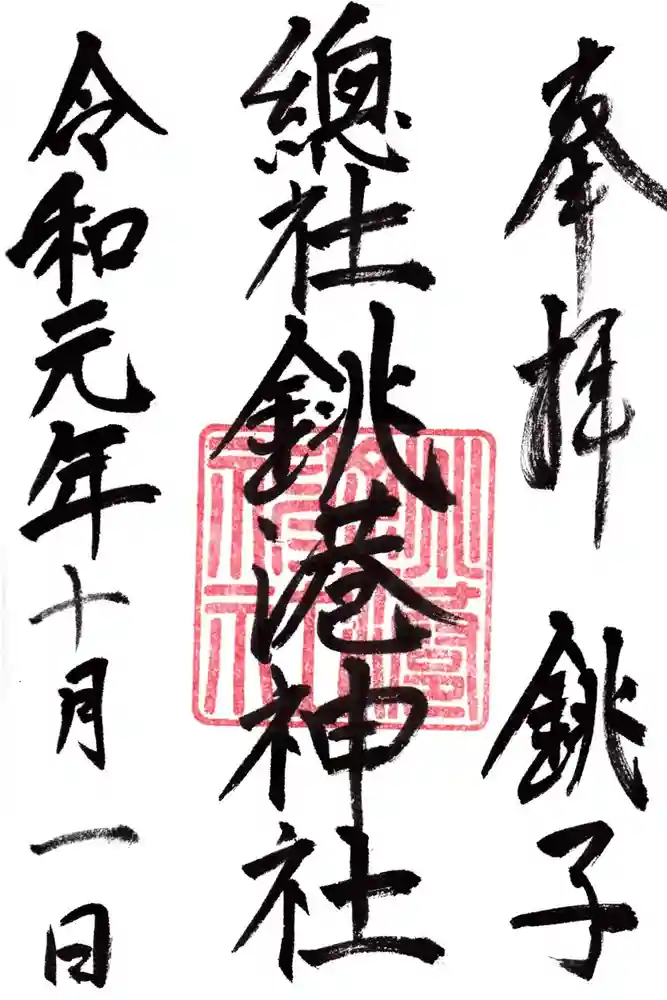 奉拝 銚子
總社 銚港神社
令和元年十月一日
銚港神社